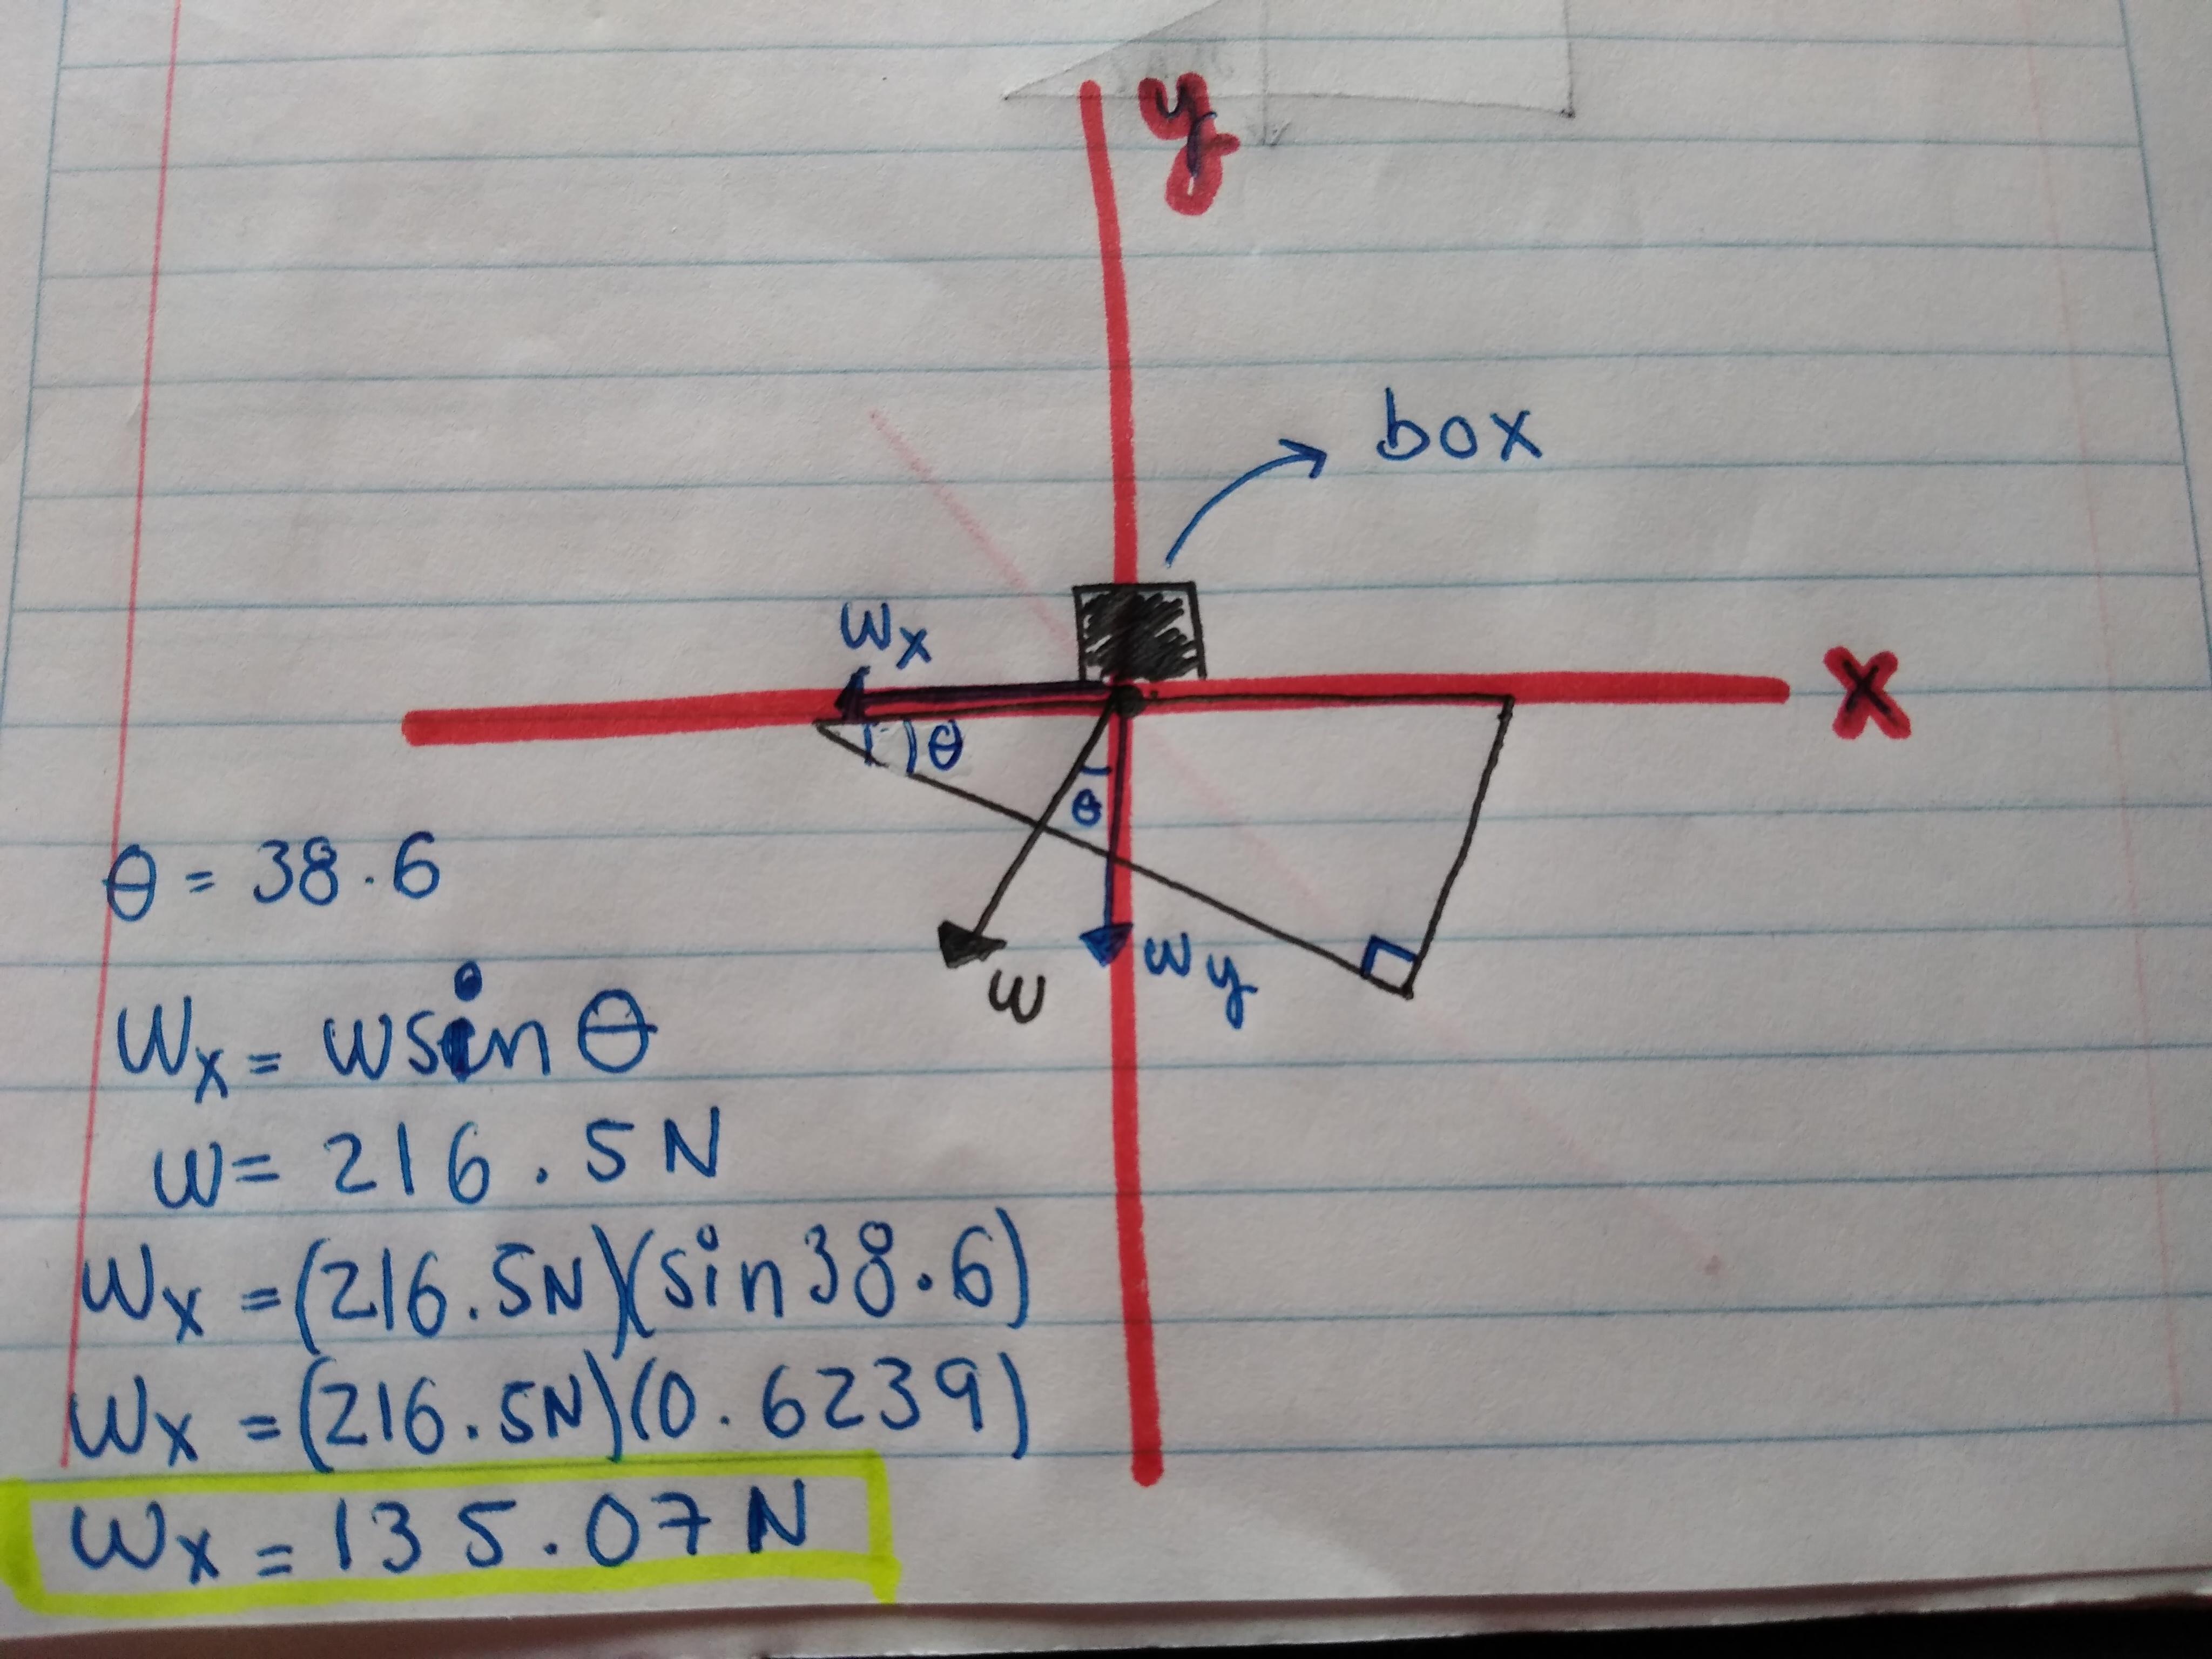 y
box
Wx
X
θ
θ
θ = 38.6
W
Wy
Wx = Wsin θ
W = 216.5N
Wx = (216.5N)(sin38.6)
Wx = (216.5N)(0.6239)
Wx = 135.07N